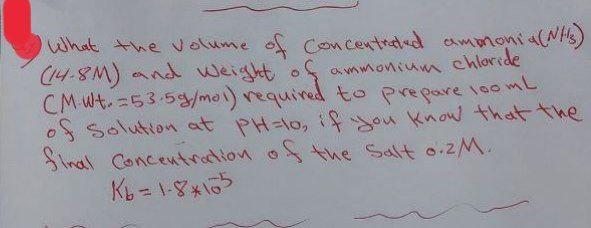 What the volume of Concentrated ammonia(NH3)
(14.8M) and weight of ammonium chloride
(M.wt.=53.5g/mol) required to prepare 100mL
of solution at PH=10, if you know that the
final Concentration of the salt 0.2M.
Kb = 1.8*10^-5